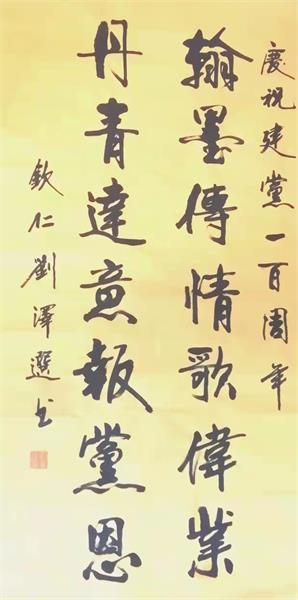 慶祝建黨一百周年
翰墨傳情歌偉業
丹青達意報黨恩
欽仁劉澤選书